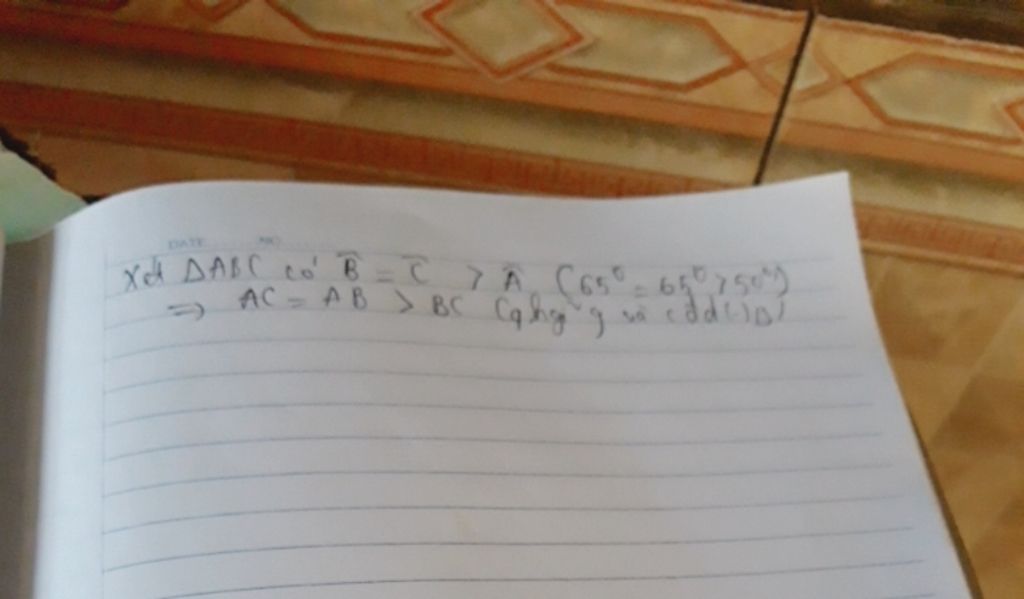 DATE NO
Xét ΔABC có B̂ = Ĉ > Â (65⁰ = 65⁰ > 50⁰)
=> AC = AB > BC (qhg g và cđd (-) Δ)